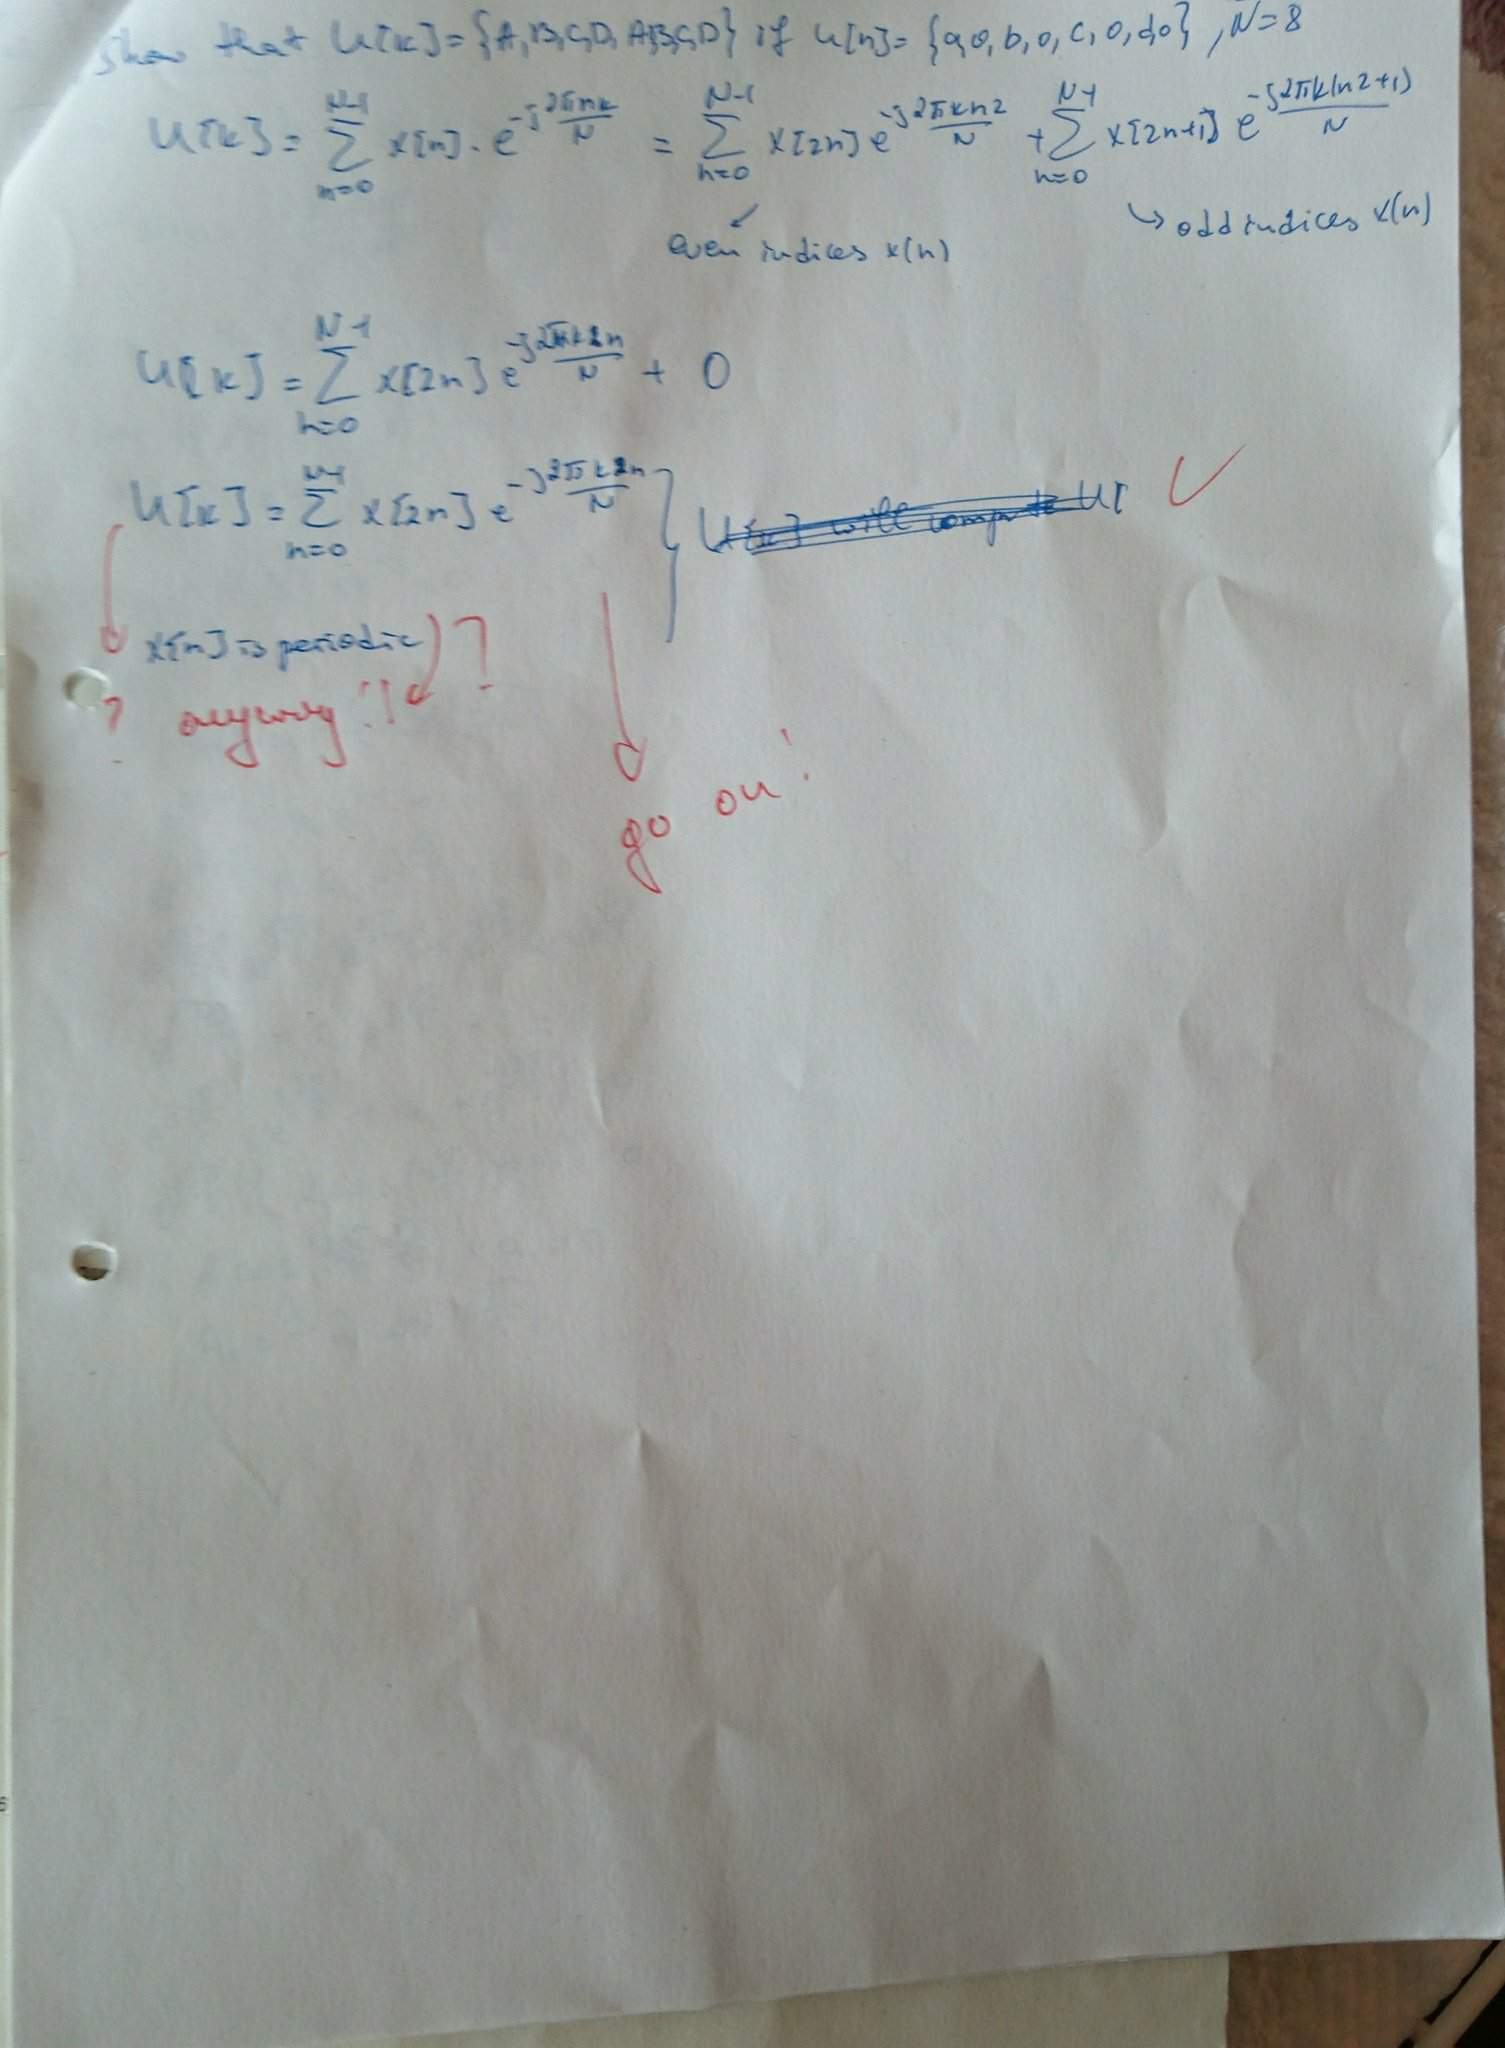 Show that U[k] = {A, B, C, D, A, B, C, D} if u[n] = {a, 0, b, 0, c, 0, d, 0}, N=8
U[k] = Σ_{n=0}^{N-1} x[n] · e^{-j 2πnk/N} = Σ_{n=0}^{N-1} x[2n] e^{-j 2πkn2/N} + Σ_{n=0}^{N-1} x[2n+1] e^{-j 2πk(n2+1)/N}
↙ ↳ odd indices x(n)
even indices x(n)
U[k] = Σ_{n=0}^{N-1} x[2n] e^{-j 2πk2n/N} + 0
U[k] = Σ_{n=0}^{N-1} x[2n] e^{-j 2πk2n/N} } U[k] will compute U[ ✓
x[n] is periodic) ?
? anyway!!
go on!
6